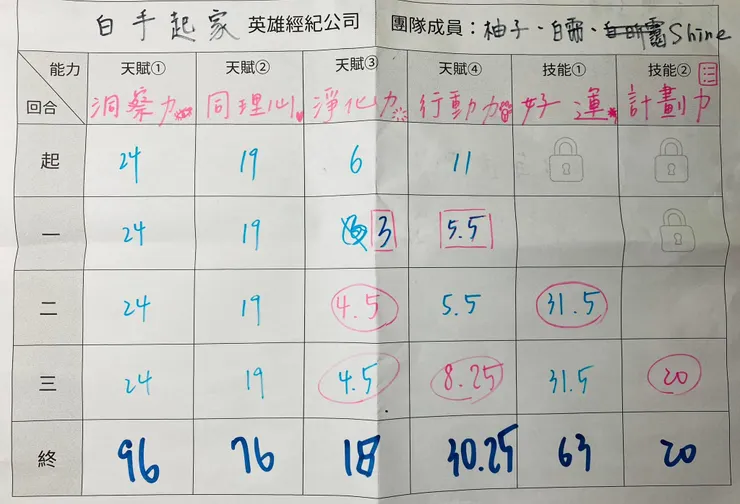 白手起家 英雄經紀公司 團隊成員：柚子、白霈、Shine
能力 回合 天賦① 天賦② 天賦③ 天賦④ 技能① 技能②
洞察力 同理心 淨化力 行動力 好運 計劃力
起 24 19 6 11
一 24 19 3 5.5
二 24 19 4.5 5.5 31.5
三 24 19 4.5 8.25 31.5 20
終 96 76 18 30.25 63 20